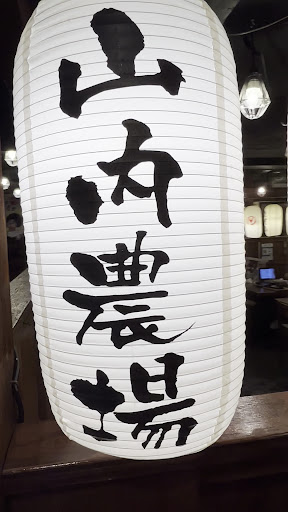 山内農場